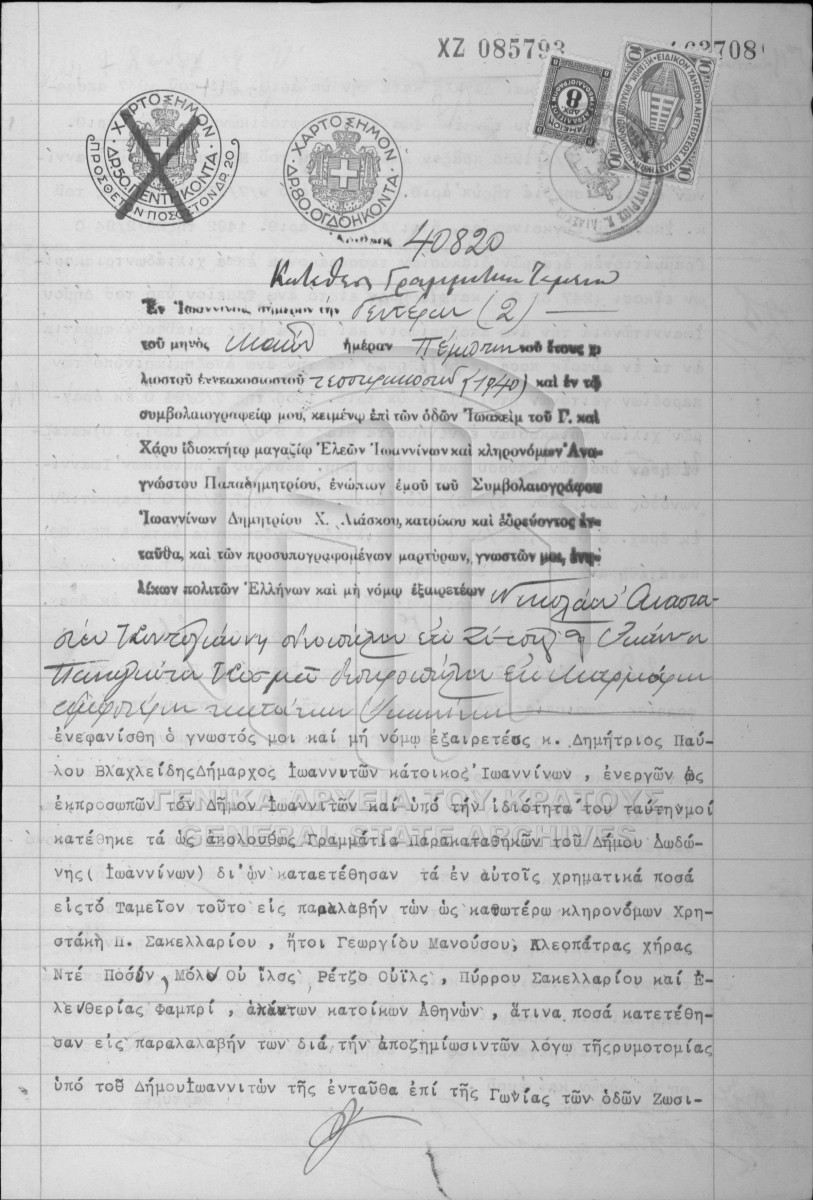 ΧΖ 085793
ΧΑΡΤΟΣΗΜΟΝ
ΔΡ.50.ΠΕΝΤΗΚΟΝΤΑ
ΠΡΟΣΘΕΤΟΝ ΠΟΣΟΣΤΟΝ ΔΡ. 20
ΧΑΡΤΟΣΗΜΟΝ
ΔΡ.80.ΟΓΔΟΗΚΟΝΤΑ
8
10
Ἀριθμὸς 40820
Κατάθεσις Γραμματίων
Ἐν Ἰωαννίνοις σήμερον τὴν Δευτέραν (2)
τοῦ μηνὸς Μαΐου ἡμέραν Πέμπτην τοῦ ἔτους χι
λιοστοῦ ἐννεακοσιοστοῦ τεσσαρακοστοῦ (1940) καὶ ἐν τῷ
συμβολαιογραφείῳ μου, κειμένῳ ἐπὶ τῶν ὁδῶν Ἰωακεὶμ τοῦ Γ. καὶ
Χάρυ ἰδιοκτήτῳ μαγαζίῳ Ἐλεῶν Ἰωαννίνων καὶ κληρονόμων Ἀνα-
γνώστου Παπαδημητρίου, ἐνώπιον ἐμοῦ τοῦ Συμβολαιογράφου
Ἰωαννίνων Δημητρίου Χ. Λιάσκου, κατοίκου καὶ ἑδρεύοντος ἐν-
ταῦθα, καὶ τῶν προσυπογραφομένων μαρτύρων, γνωστῶν μοι, ἐνη-
λίκων πολιτῶν Ἑλλήνων καὶ μὴ νόμῳ ἐξαιρετέων Νικολάου Αναστα-
ἐνεφανίσθη ὁ γνωστός μοι καί μή νόμῳ ἐξαιρετέος κ. Δημήτριος Παύ-
λου Βλαχλείδης Δήμαρχος Ἰωαννιτῶν κάτοικος Ἰωαννίνων , ἐνεργῶν ὡς
ἐκπροσωπῶν τόν Δῆμον Ἰωαννιτῶν καί ὑπό τήν ἰδιότητα του ταύτηνμοί
ΓΕΝΙΚΑ ΑΡΧΕΙΑ ΤΟΥ ΚΡΑΤΟΥΣ
κατέθηκε τά ὡς ἀκολούθως Γραμμάτια Παρακαταθηκῶν τοῦ Δήμου Δωδώ-
GENERAL STATE ARCHIVES
νης( Ἰωαννίνων) δι'ὧν καταετέθησαν τά ἐν αὐτοῖς χρηματικά ποσά
εἰςτό Ταμεῖον τοῦτο εἰς παραλαβήν τῶν ὡς κατωτέρω κληρονόμων Χρη-
στάκη Π. Σακελλαρίου , ἤτοι Γεωργίου Μανούσου, Κλεοπάτρας χήρας
Ντέ Ποσόν, Μόλυ Οὐ ΐλσς Ρέτζο Οὐΐλς , Πύρρου Σακελλαρίου καί Ἐ-
λευθερίας Φαμπρί , ἁπάντων κατοίκων Ἀθηνῶν , ἅτινα ποσά κατετέθη-
σαν εἰς παραλαλαβήν των διά τήν ἀποζημίωσιντῶν λόγω τῆςρυμοτομίας
ὑπό τοῦ ΔήμουἸωαννιτῶν τῆς ἐνταῦθα ἐπί τῆς Γωνίας τῶν ὁδῶν Ζωσι-